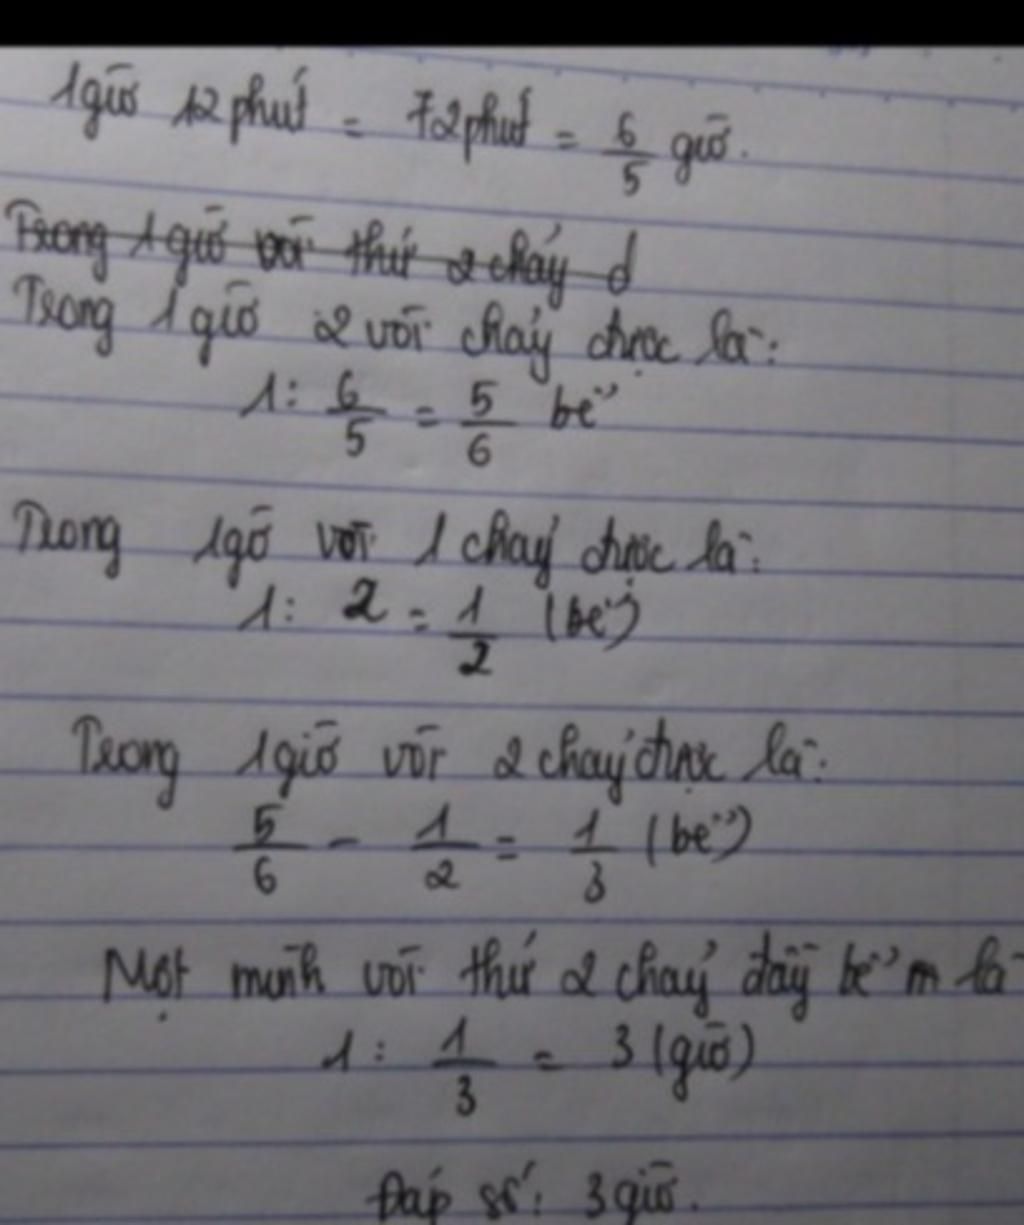 1 giờ 12 phút = 72 phút = 6/5 giờ.
Trong 1 giờ vòi thứ 2 chảy đ
Trong 1 giờ 2 vòi chảy được là:
1 : 6/5 = 5/6 bể
Trong 1 gờ vòi 1 chảy được là:
1 : 2 = 1/2 (bể)
Trong 1 giờ vòi 2 chảy được là:
5/6 - 1/2 = 1/3 (bể)
Một mình vòi thứ 2 chảy đầy bể m là
1 : 1/3 = 3 (giờ)
Đáp số: 3 giờ.